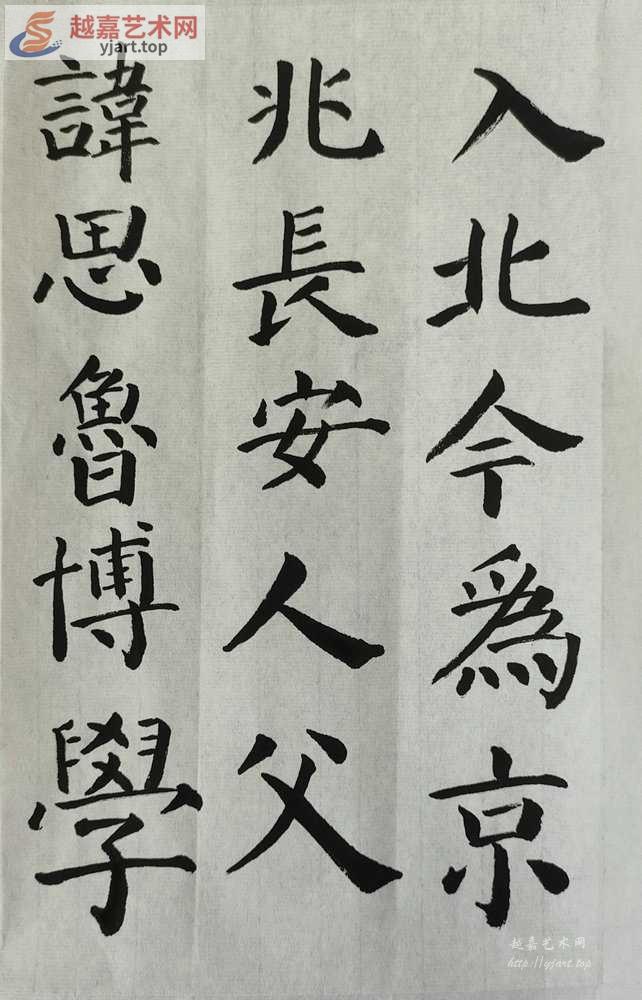 越嘉艺术网
yjart.top
入北今為京
兆長安人父
諱思魯博學
越嘉艺术网
http://yjart.top